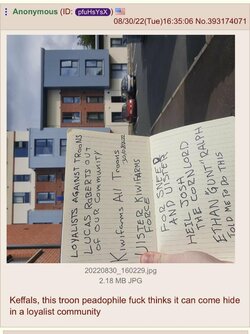 Anonymous (ID: pfuHsYsX)
08/30/22(Tue)16:35:06 No.393174071
LOYALISTS AGAINST TROONS
LUCAS ROBERTS OUT
OF OUR COMMUNITY
Kiwifarms All Troons
ULSTER KIWIFARMS
FORCE
FOR SNEED
AND ULSTER
HEIL JOSH
THE CORNLORD
ETHAN "GUNT" RALPH
TOLD ME TO DO THIS
20220830_160229.jpg
2.18 MB JPG
Keffals, this troon peadophile fuck thinks it can come hide
in a loyalist community